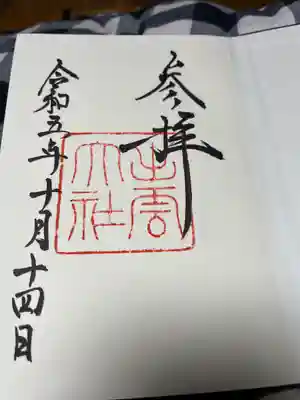 参拝
出雲
大社
令和五年十月十四日